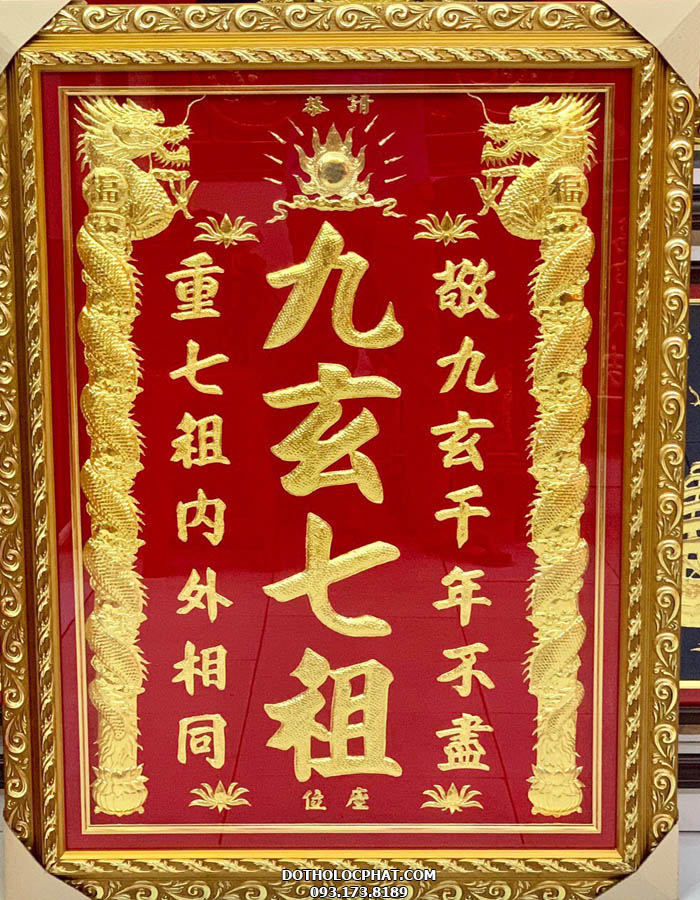 恭請
福
福
敬九玄千年不盡
九玄七祖
重七祖内外相同
位座
DOTHOLOCPHAT.COM
093.173.8189